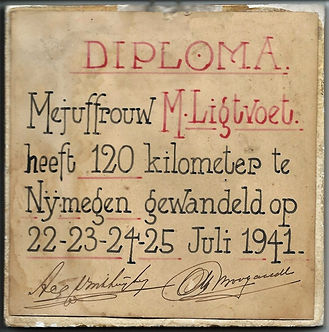 DIPLOMA.
Mejuffrouw M. Ligtvoet.
heeft 120 kilometer te
Nijmegen gewandeld op
22-23-24-25 Juli 1941.